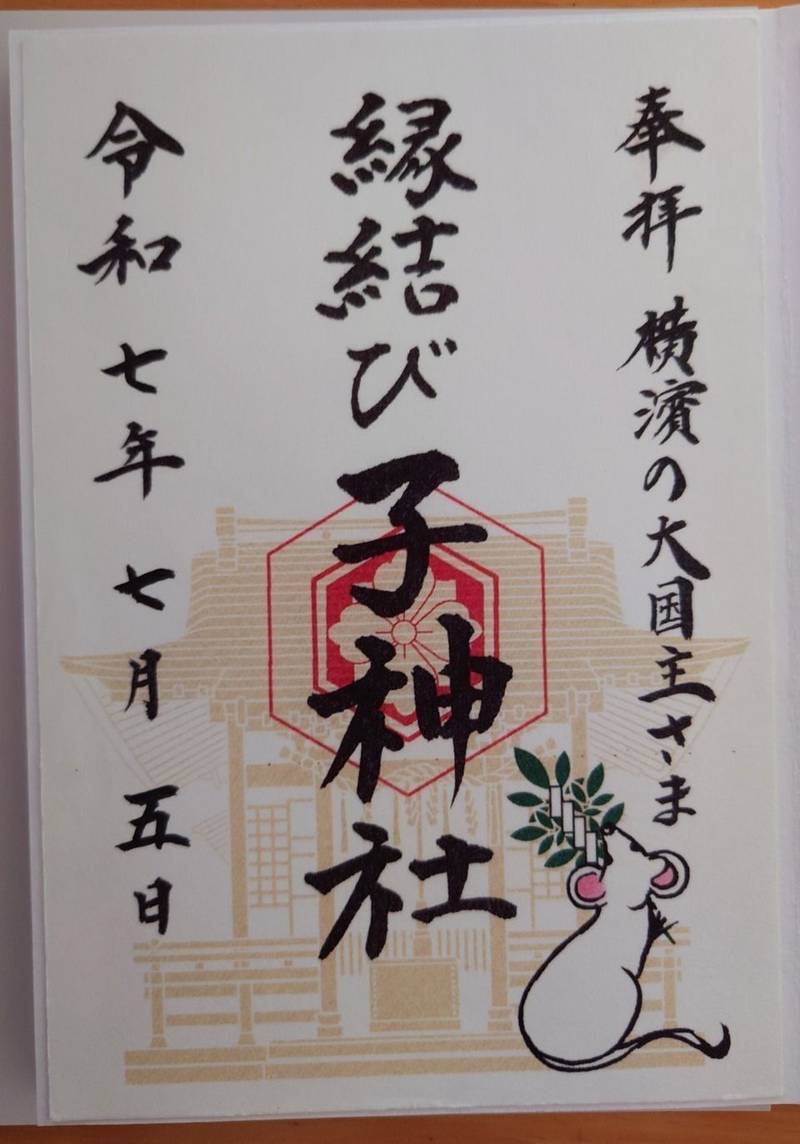 奉拝 横濱の大国主さま
縁結び子神社
令和七年七月五日